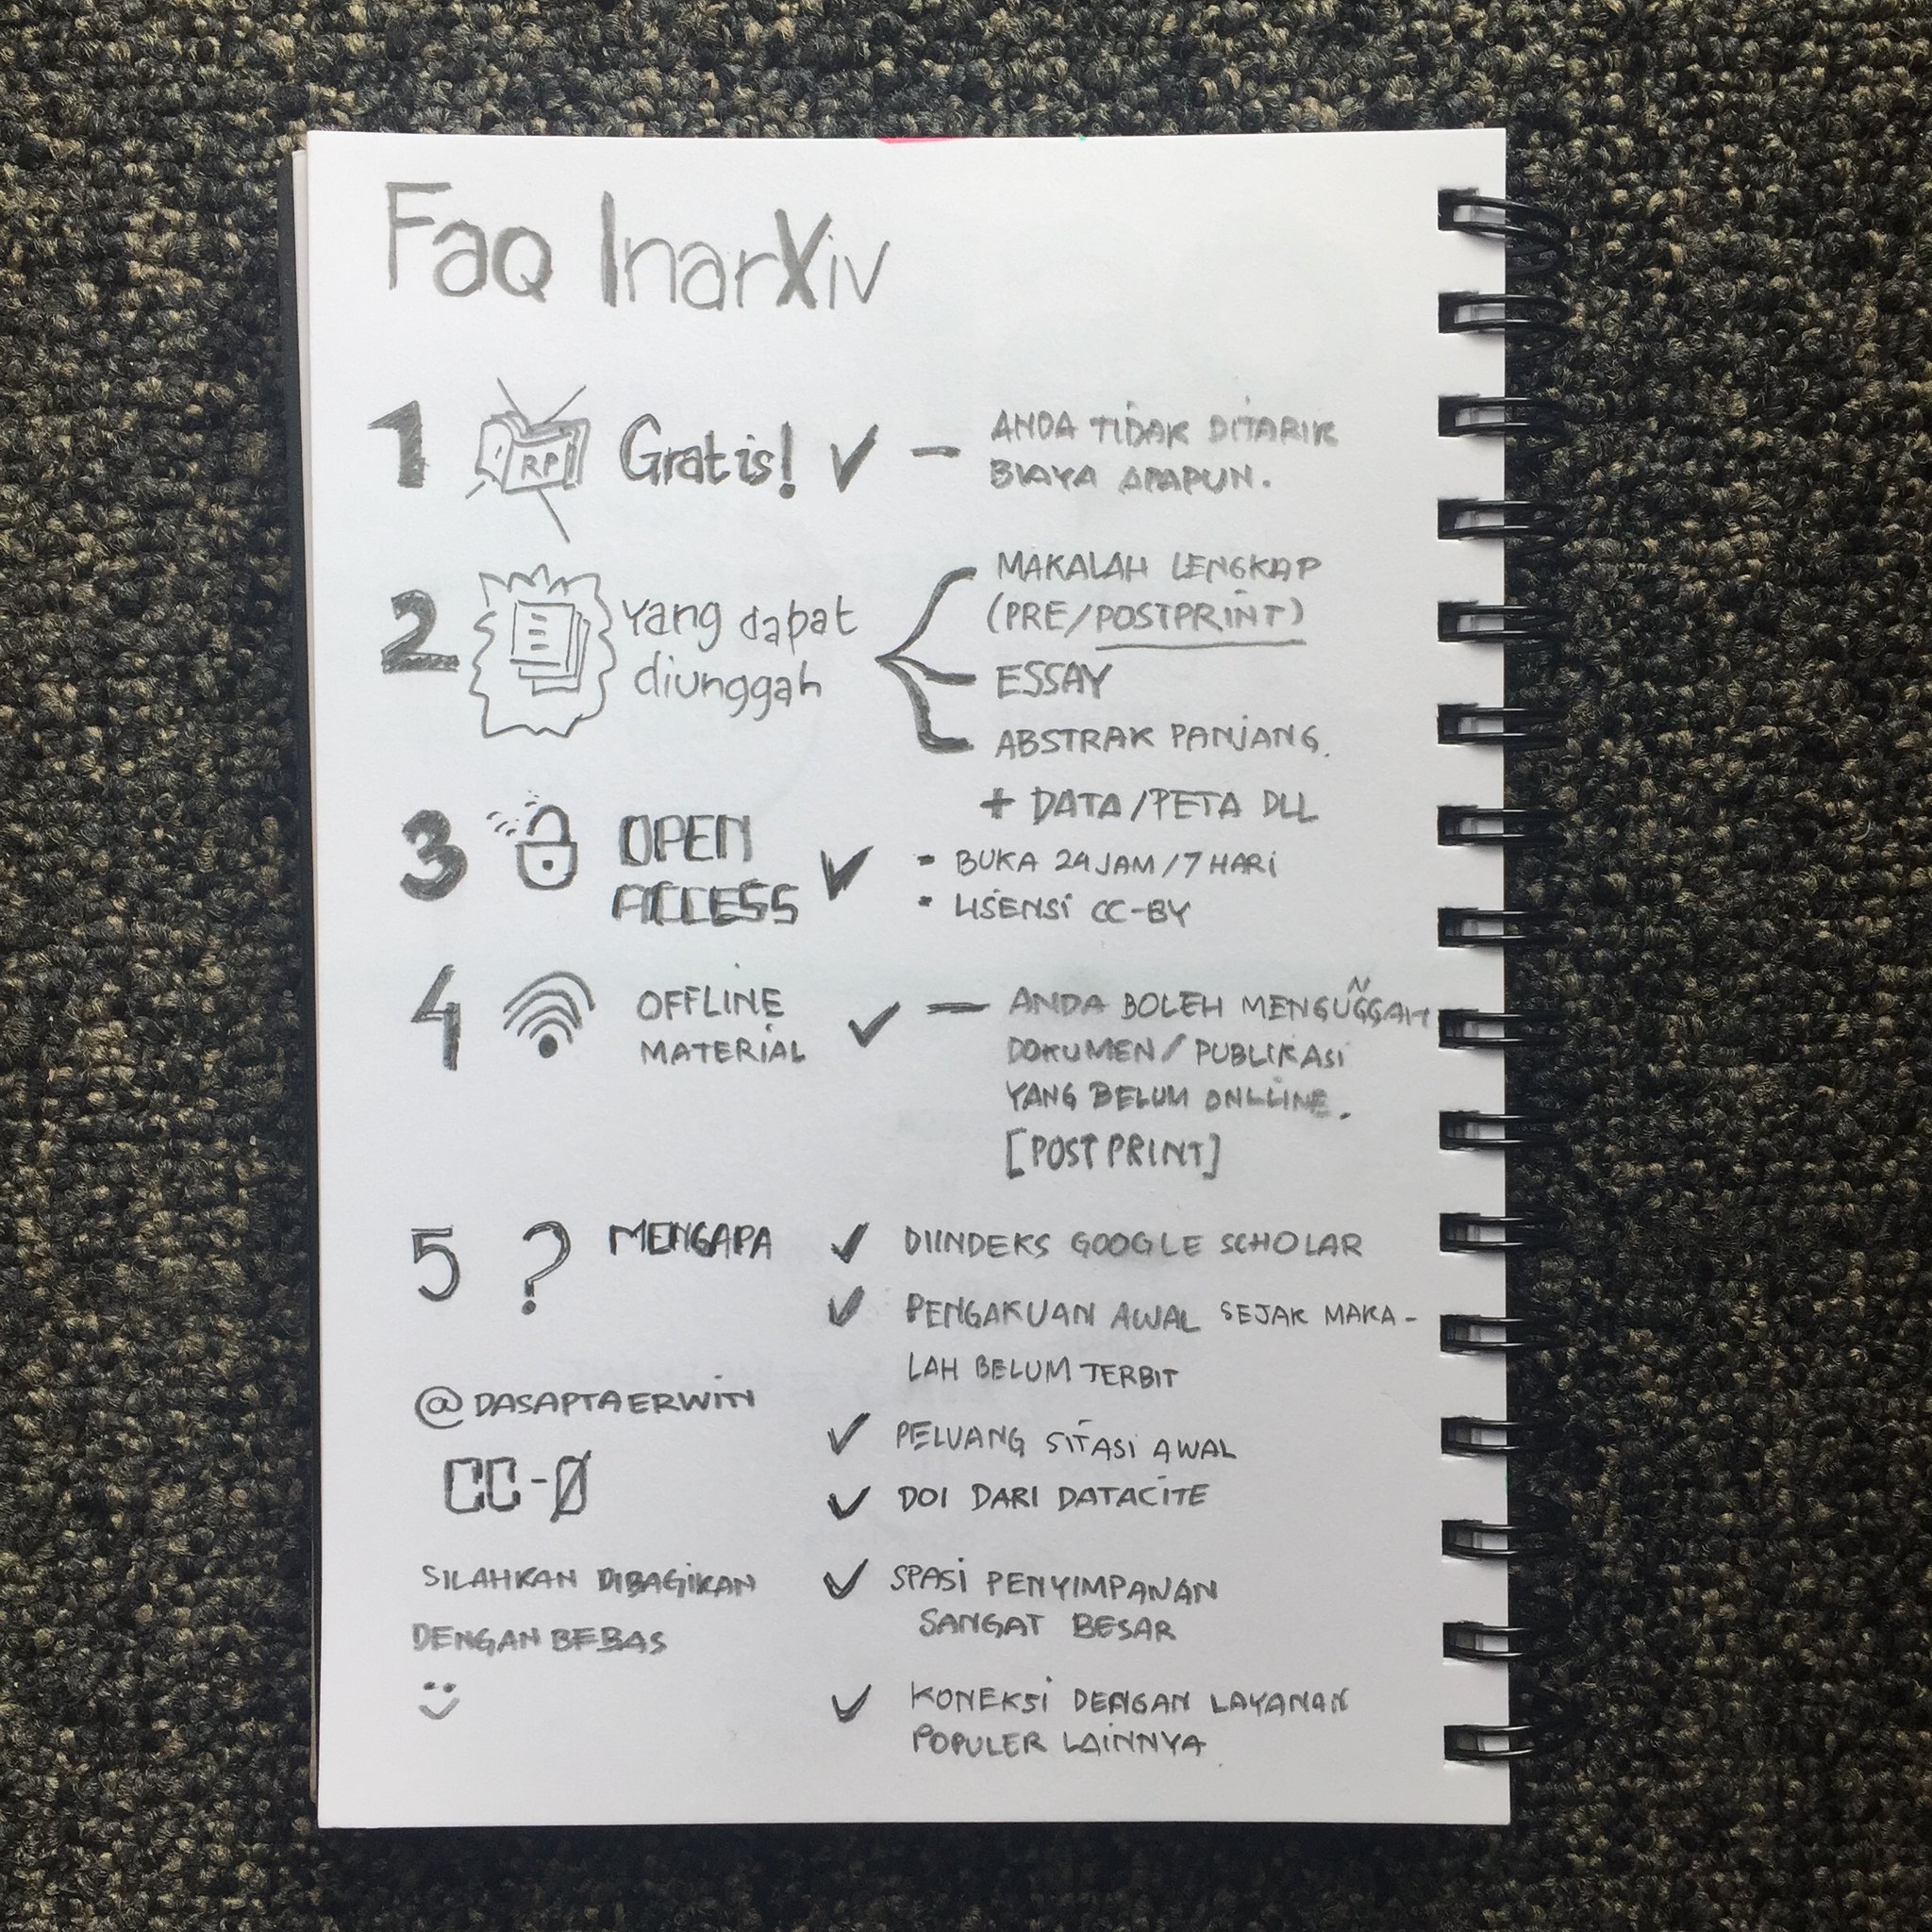 Faq InarXiv
1 RP Gratis! ✓ — ANDA TIDAK DITARIK
BIAYA APAPUN.
2 Yang dapat
diunggah
MAKALAH LENGKAP
(PRE/POSTPRINT)
ESSAY
ABSTRAK PANJANG.
+ DATA/PETA DLL
3 OPEN
ACCESS ✓
- BUKA 24 JAM/7 HARI
• LISENSI CC-BY
4 OFFLINE
MATERIAL ✓ —
ANDA BOLEH MENGUNGGAH
DOKUMEN/PUBLIKASI
YANG BELUM ONLLINE.
[POST PRINT]
5 ? MENGAPA
✓ DIINDEKS GOOGLE SCHOLAR
✓ PENGAKUAN AWAL SEJAK MAKA-
LAH BELUM TERBIT
✓ PELUANG SITASI AWAL
✓ DOI DARI DATACITE
✓ SPASI PENYIMPANAN
SANGAT BESAR
✓ KONEKSI DENGAN LAYANAN
POPULER LAINNYA
@DASAPTAERWIN
CC-0
SILAHKAN DIBAGIKAN
DENGAN BEBAS